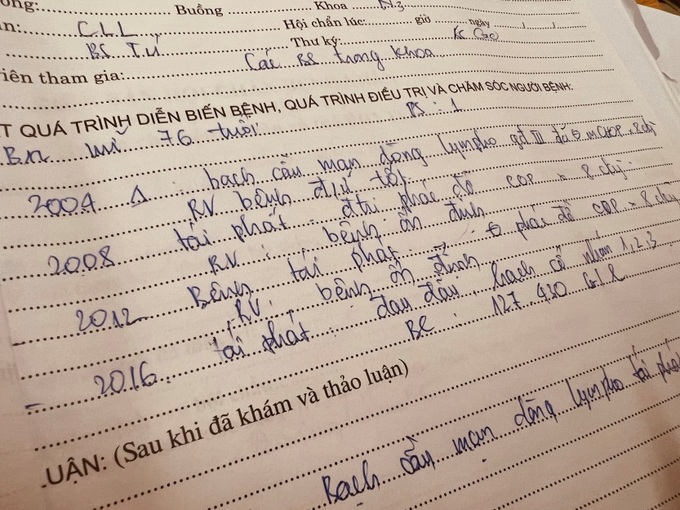 Buồng Khoa
n: CLL Hội chẩn lúc: giờ ngày / /
BS Tú Thư ký:
iên tham gia: Các BS trong khoa
T QUÁ TRÌNH DIỄN BIẾN BỆNH, QUÁ TRÌNH ĐIỀU TRỊ VÀ CHĂM SÓC NGƯỜI BỆNH:
Bn nữ 76 tuổi PS: 1
2004 Δ: bạch cầu mạn dòng lympho gđ III đã mCHOP
RV bệnh đ/ứ tốt
2008 tái phát: đtrị phác đồ COP = 8 đợt
RV: bệnh ổn định
2012 Bệnh tái phát → phác đồ COP = 8 đợt
RV: bệnh ổn định
- 2016 tái phát: đau đầu, hạch cổ nhóm 1,2,3
BC: 127.430 G/L
UẬN: (Sau khi đã khám và thảo luận)
Bạch cầu mạn dòng lympho tái phát